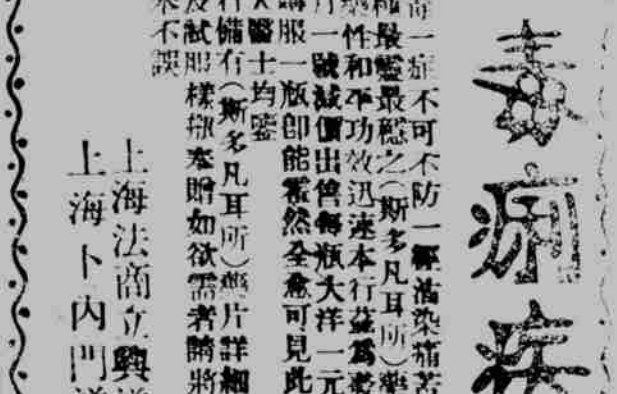 毒痢疾
毒一症不可不防一經沾染痛苦
種最靈最穩之(斯多凡耳所)藥
藥性和平功效迅速本行茲爲
片一號減價出售每瓶大洋一元
購服一瓶卽能霍然全愈可見此
大醫士均鑒
行備有(斯多凡耳所)藥片詳細
及試服樣瓶奉贈如欲需者請將
不誤
上海法商立興
上海卜內門